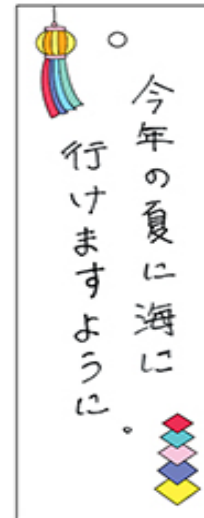 今年の夏に海に
行けますように。